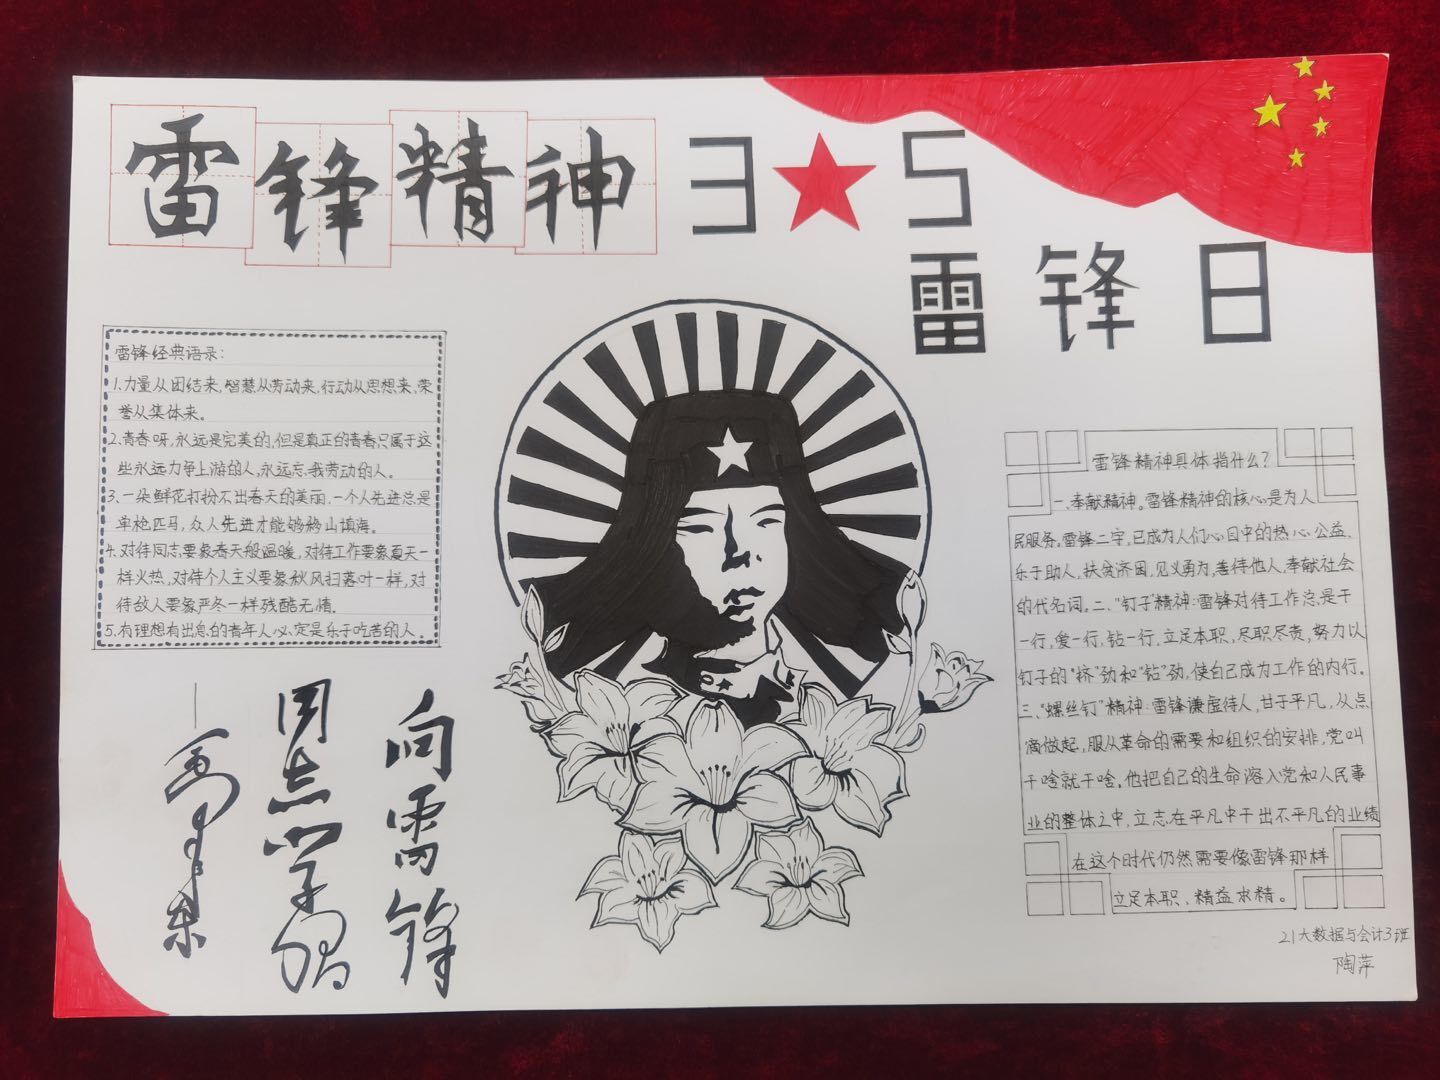 雷锋精神
3 5
雷锋日
雷锋经典语录：
1.力量从团结来,智慧从劳动来,行动从思想来,荣
誉从集体来。
2.青春呀,永远是完美的,但是真正的青春只属于这
些永远力争上游的人,永远忘我劳动的人。
3.一朵鲜花打扮不出春天的美丽,一个人先进总是
单枪匹马,众人先进才能够移山填海。
4.对待同志要象春天般温暖,对待工作要象夏天一
样火热,对待个人主义要象秋风扫落叶一样,对
待敌人要象严冬一样残酷无情.
5.有理想有出息的青年人必定是乐于吃苦的人。
向雷锋
同志学习
毛泽东
雷锋精神具体指什么?
一.奉献精神。雷锋精神的核心是为人
民服务。雷锋二字,已成为人们心目中的热心公益、
乐于助人,扶贫济困,见义勇为,善待他人,奉献社会
的代名词。二、“钉子”精神:雷锋对待工作总是干
一行,爱一行,钻一行,立足本职,尽职尽责,努力以
钉子的“挤”劲和“钻”劲,使自己成为工作的内行。
三、“螺丝钉”精神:雷锋谦虚待人,甘于平凡,从点
滴做起,服从革命的需要和组织的安排,党叫
干啥就干啥,他把自己的生命溶入党和人民事
业的整体之中,立志在平凡中干出不平凡的业绩
在这个时代仍然需要像雷锋那样
立足本职、精益求精。
21大数据与会计3班
陶萍